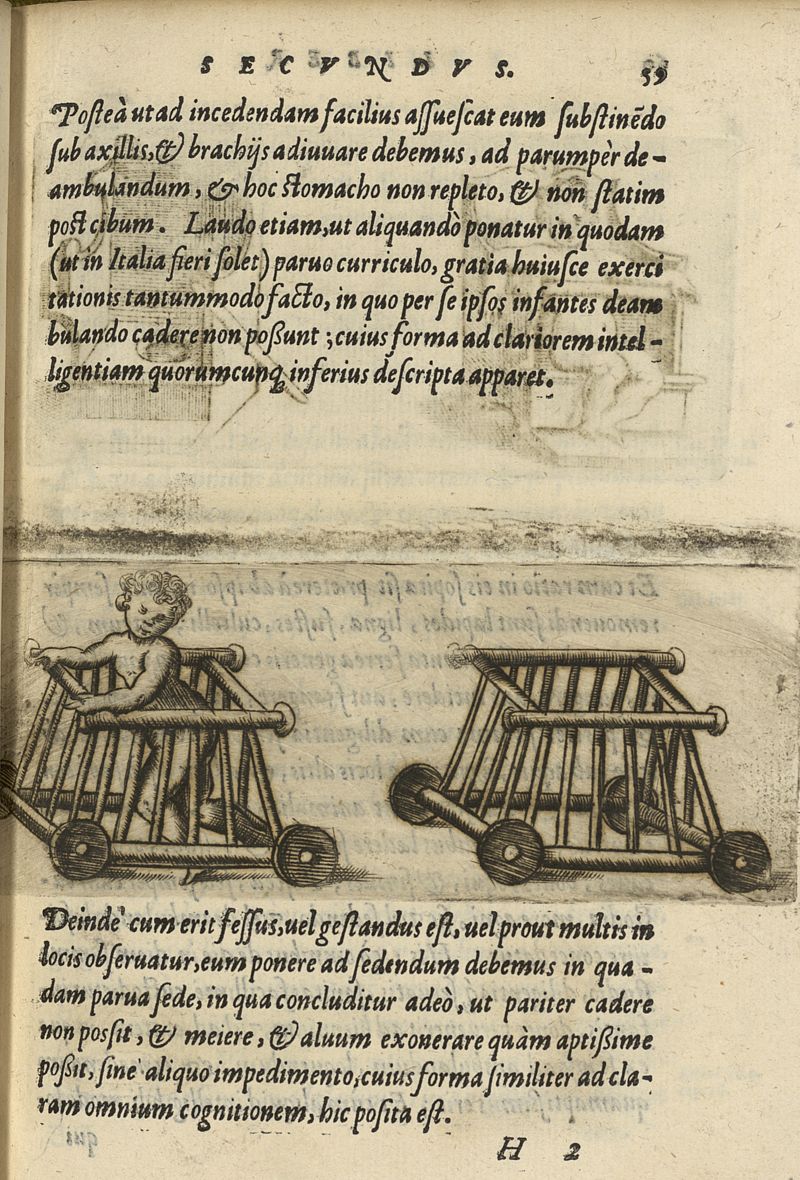 SECVNDVS. 59
Posteà ut ad incedendam facilius assuescat eum substinẽdo
sub axillis, & brachijs adiuuare debemus, ad parumpèr de-
ambulandum, & hoc stomacho non repleto, & non statim
post cibum. Laudo etiam, ut aliquandò ponatur in quodam
(ut in Italia fieri solet) paruo curriculo, gratia huiusce exerci
tationis tantummodo facto, in quo per se ipsos infantes deam
bulando cadere non poßunt; cuius forma ad clariorem intel-
ligentiam quorumcunq; inferius descripta apparet.
Deindè cum erit fessus, uel gestandus est, uel prout multis in
locis obseruatur, eum ponere ad sedendum debemus in qua-
dam parua sede, in qua concluditur adeò, ut pariter cadere
non possit, & meiere, & aluum exonerare quàm aptißime
poßit, sine aliquo impedimento, cuius forma similiter ad cla-
ram omnium cognitionem, hic posita est.
H 2